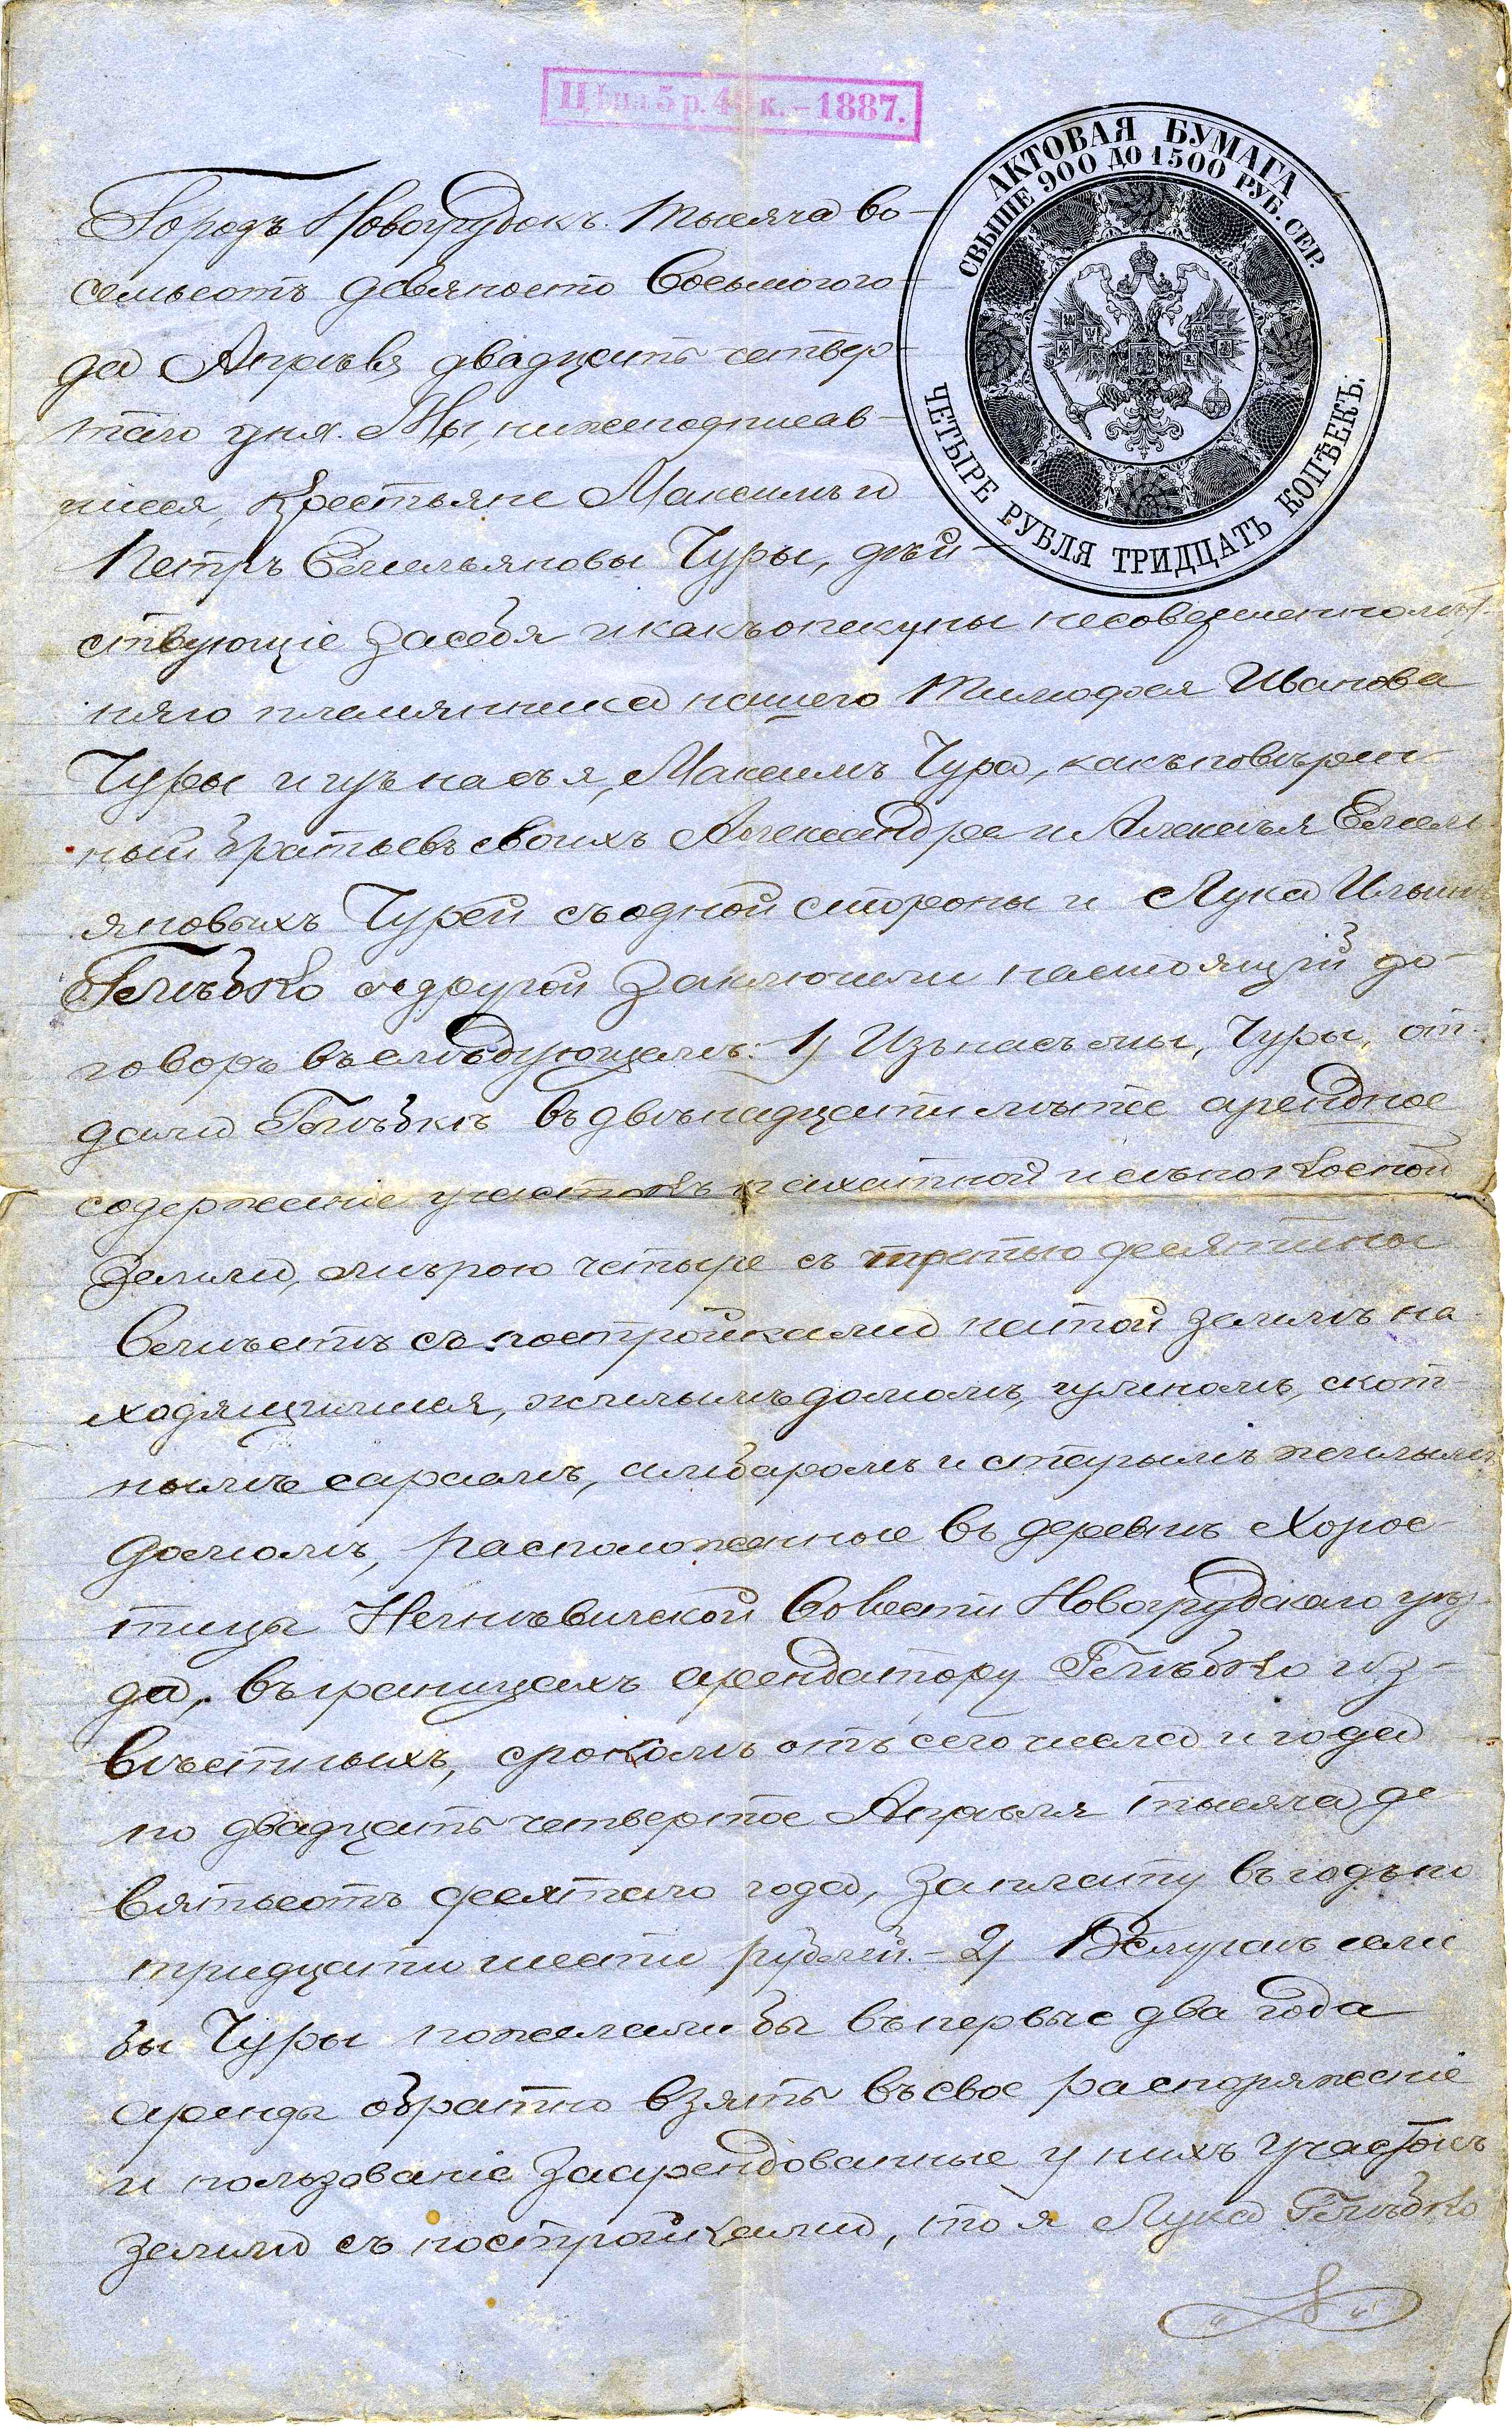 Цѣна 5 р. 4 к. – 1887.
АКТОВАЯ БУМАГА
СВЫШЕ 900 ДО 1500 РУБ. СЕР.
ЧЕТЫРЕ РУБЛЯ ТРИДЦАТЬ КОПѢЕКЪ.
Городъ Новогрудокъ. Тысяча во-
семьсотъ девяносто восьмого го-
да Апрѣля двадцать четвер-
таго дня. Мы, нижеподписав-
шiеся, крестьяне Максимъ и
Петръ Емельяновы Чуры, дѣй-
ствующiе за себя и какъ опекуны несовершеннолѣт-
няго племянника нашего Тимофея Иванова
Чуры и изъ насъ я, Максимъ Чура, какъ повѣрен-
ный братьевъ своихъ Александра и Алексѣя Емель-
яновыхъ Чурей съ одной стороны и Лука Ильинъ
Гелѣбко съ другой заключили настоящiй до-
говоръ въ слѣдующемъ: 1) Изъ насъ мы, Чуры, от-
дали Гелѣбкѣ въ двѣнадцатилѣтнее арендное
содержанiе участокъ пахатной и сѣнокосной
земли, мѣрою четыре съ третью десятины
вмѣстѣ съ постройками на той землѣ на-
ходящимися, жилымъ домомъ, гумномъ, скот-
нымъ сараемъ, амбаромъ и старымъ жилымъ
домомъ, расположенные въ деревнѣ Хорос-
тица Негнѣвичской волости Новогрудскаго уѣз-
да, въ границахъ арендатору Гелѣбко из-
вѣстныхъ, срокомъ отъ сего числа и года
по двадцать четвертое Апрѣля тысяча де-
вятьсотъ десятаго года, за плату въ годъ по
тридцати шести рублей. – 2) В случаѣ если
бы Чуры пожелали бы въ первые два года
аренды обратно взять въ свое распоряженiе
и пользованiе заарендованные у нихъ участокъ
земли съ постройками, то я Лука Гелѣбко